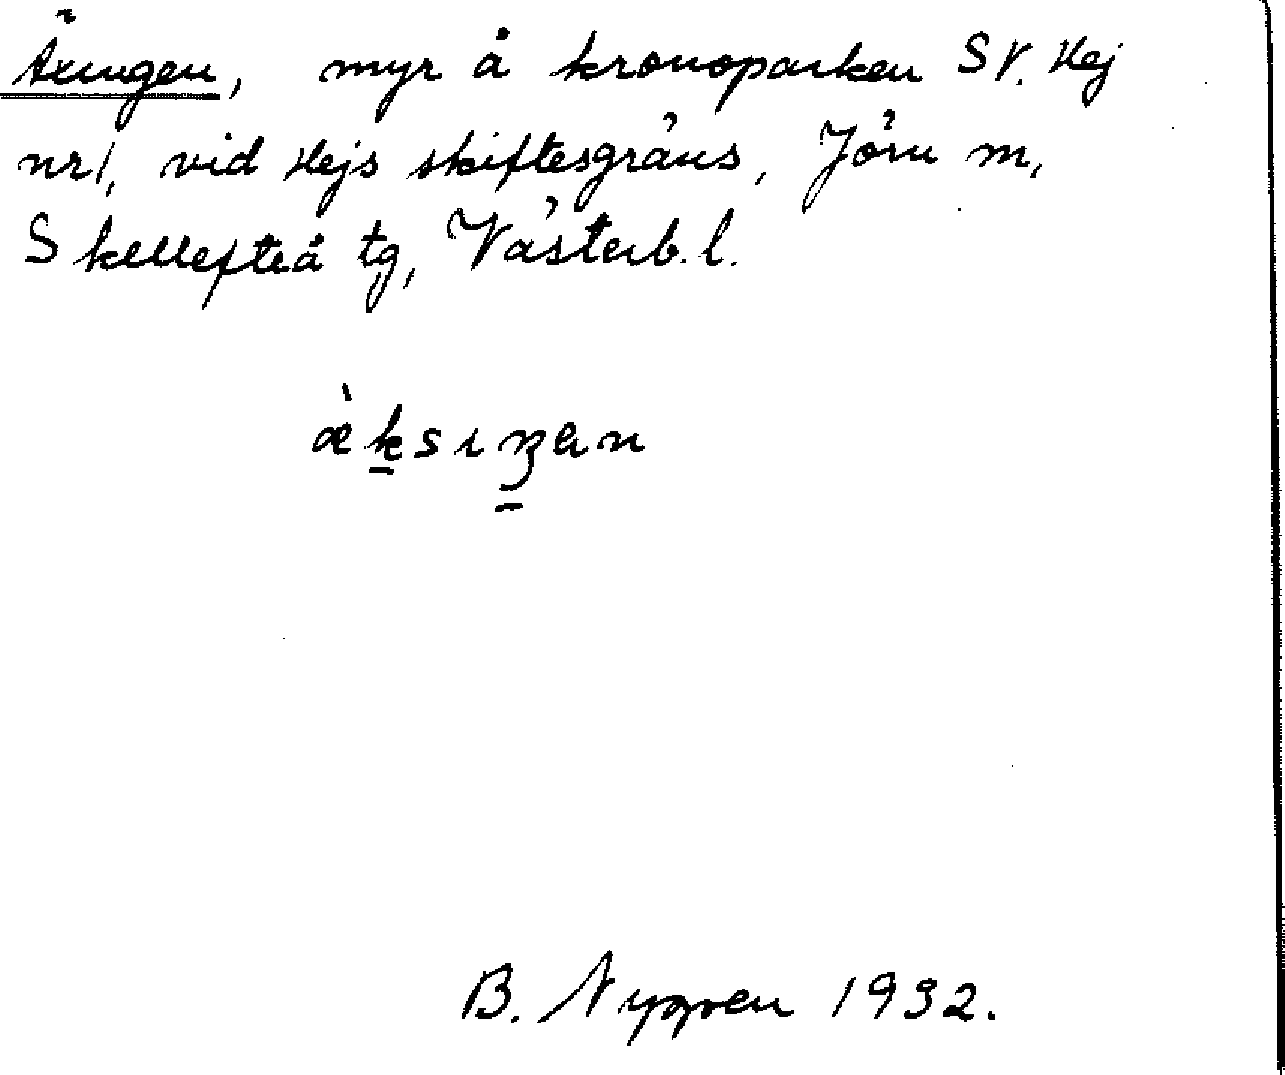 Äxingen, myr å kronoparken SV. Hej
nr 1, vid Hejs skiftesgräns, Jörn m,
Skellefteå tg, Västerb. l.
æ̀ksıŋan
B. Nygren 1932.